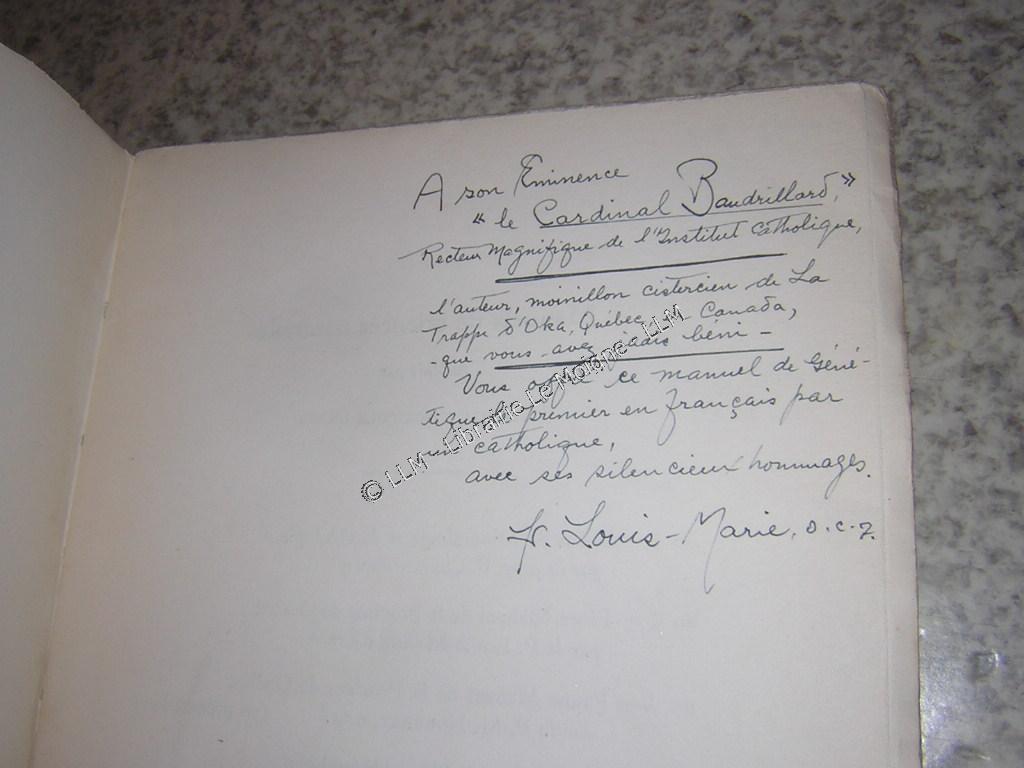 A son Eminence
« le Cardinal Baudrillard, »
Recteur Magnifique de l'Institut Catholique,
l'auteur, moinillon cistercien de La
Trappe d'Oka, Québec, Canada,
- que vous avez jadis béni -
Vous offre ce manuel de Géné-
tique, le premier en français par
un catholique,
avec ses silencieux hommages.
fr. Louis-Marie, o.c.r.
© LLM - Librairie Le Moigne - LLM